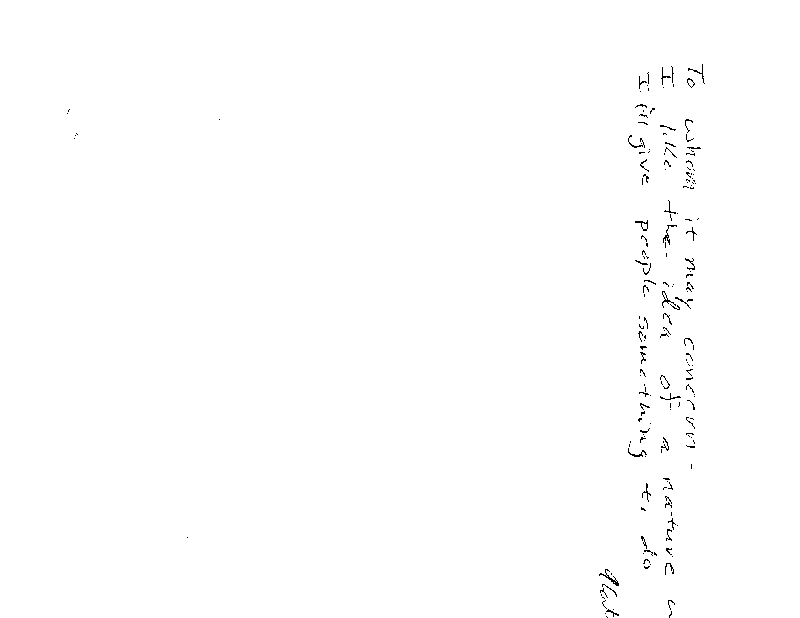 To whom it may concern-
I like the idea of a nature
I ill give people something to do